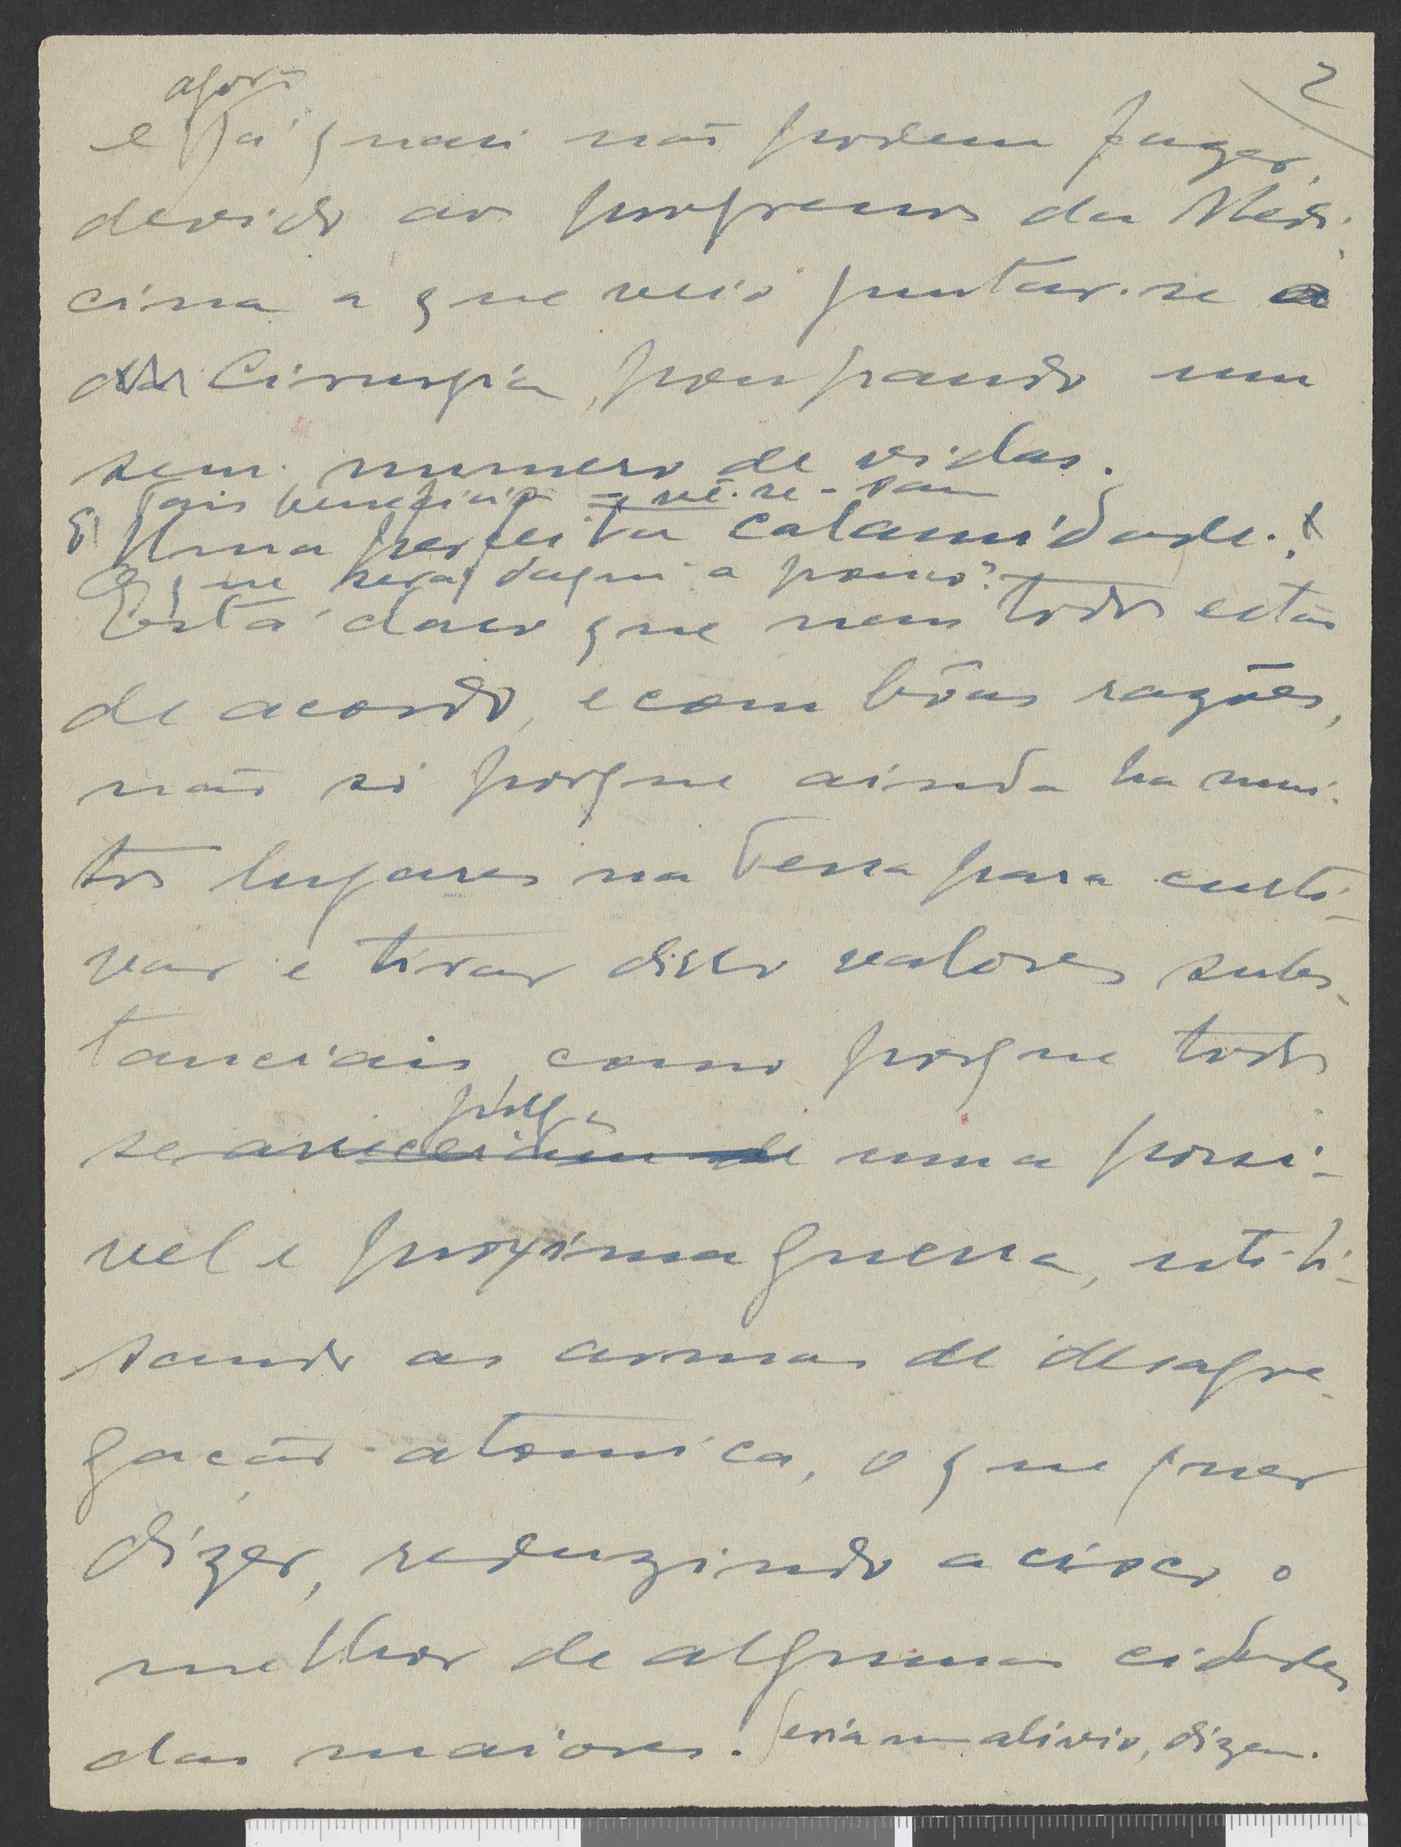 2
agora
e já quasi não podem fazer,
devido aos progressos da Medi-
cina a que veio juntar-se a
da Cirurgia, poupando um
sem numero de vidas.
Tais beneficios
É uma perfeita calamidade.
O que será, daqui a pouco?
Está claro que nem todos estão
de acordo, e com bôas razões,
não só porque ainda ha mui-
tos lugares na Terra para culti-
var e tirar disso valores subs-
tanciais, como porque todos
se uma possi-
vel e proxima guerra, utili-
sando as armas de desagre-
gação atomica, o que quer
dizer, reduzindo a cisco o
melhor de algumas cidades
das maiores. Seria um alivio, dizem.